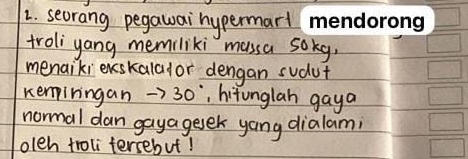 1. seorang pegawai hypermart mendorong
troli yang memiliki massa 50 kg,
menaiki ekskalator dengan sudut
kemiringan -> 30°, hitunglah gaya
normal dan gaya gesek yang dialami
oleh troli tersebut!